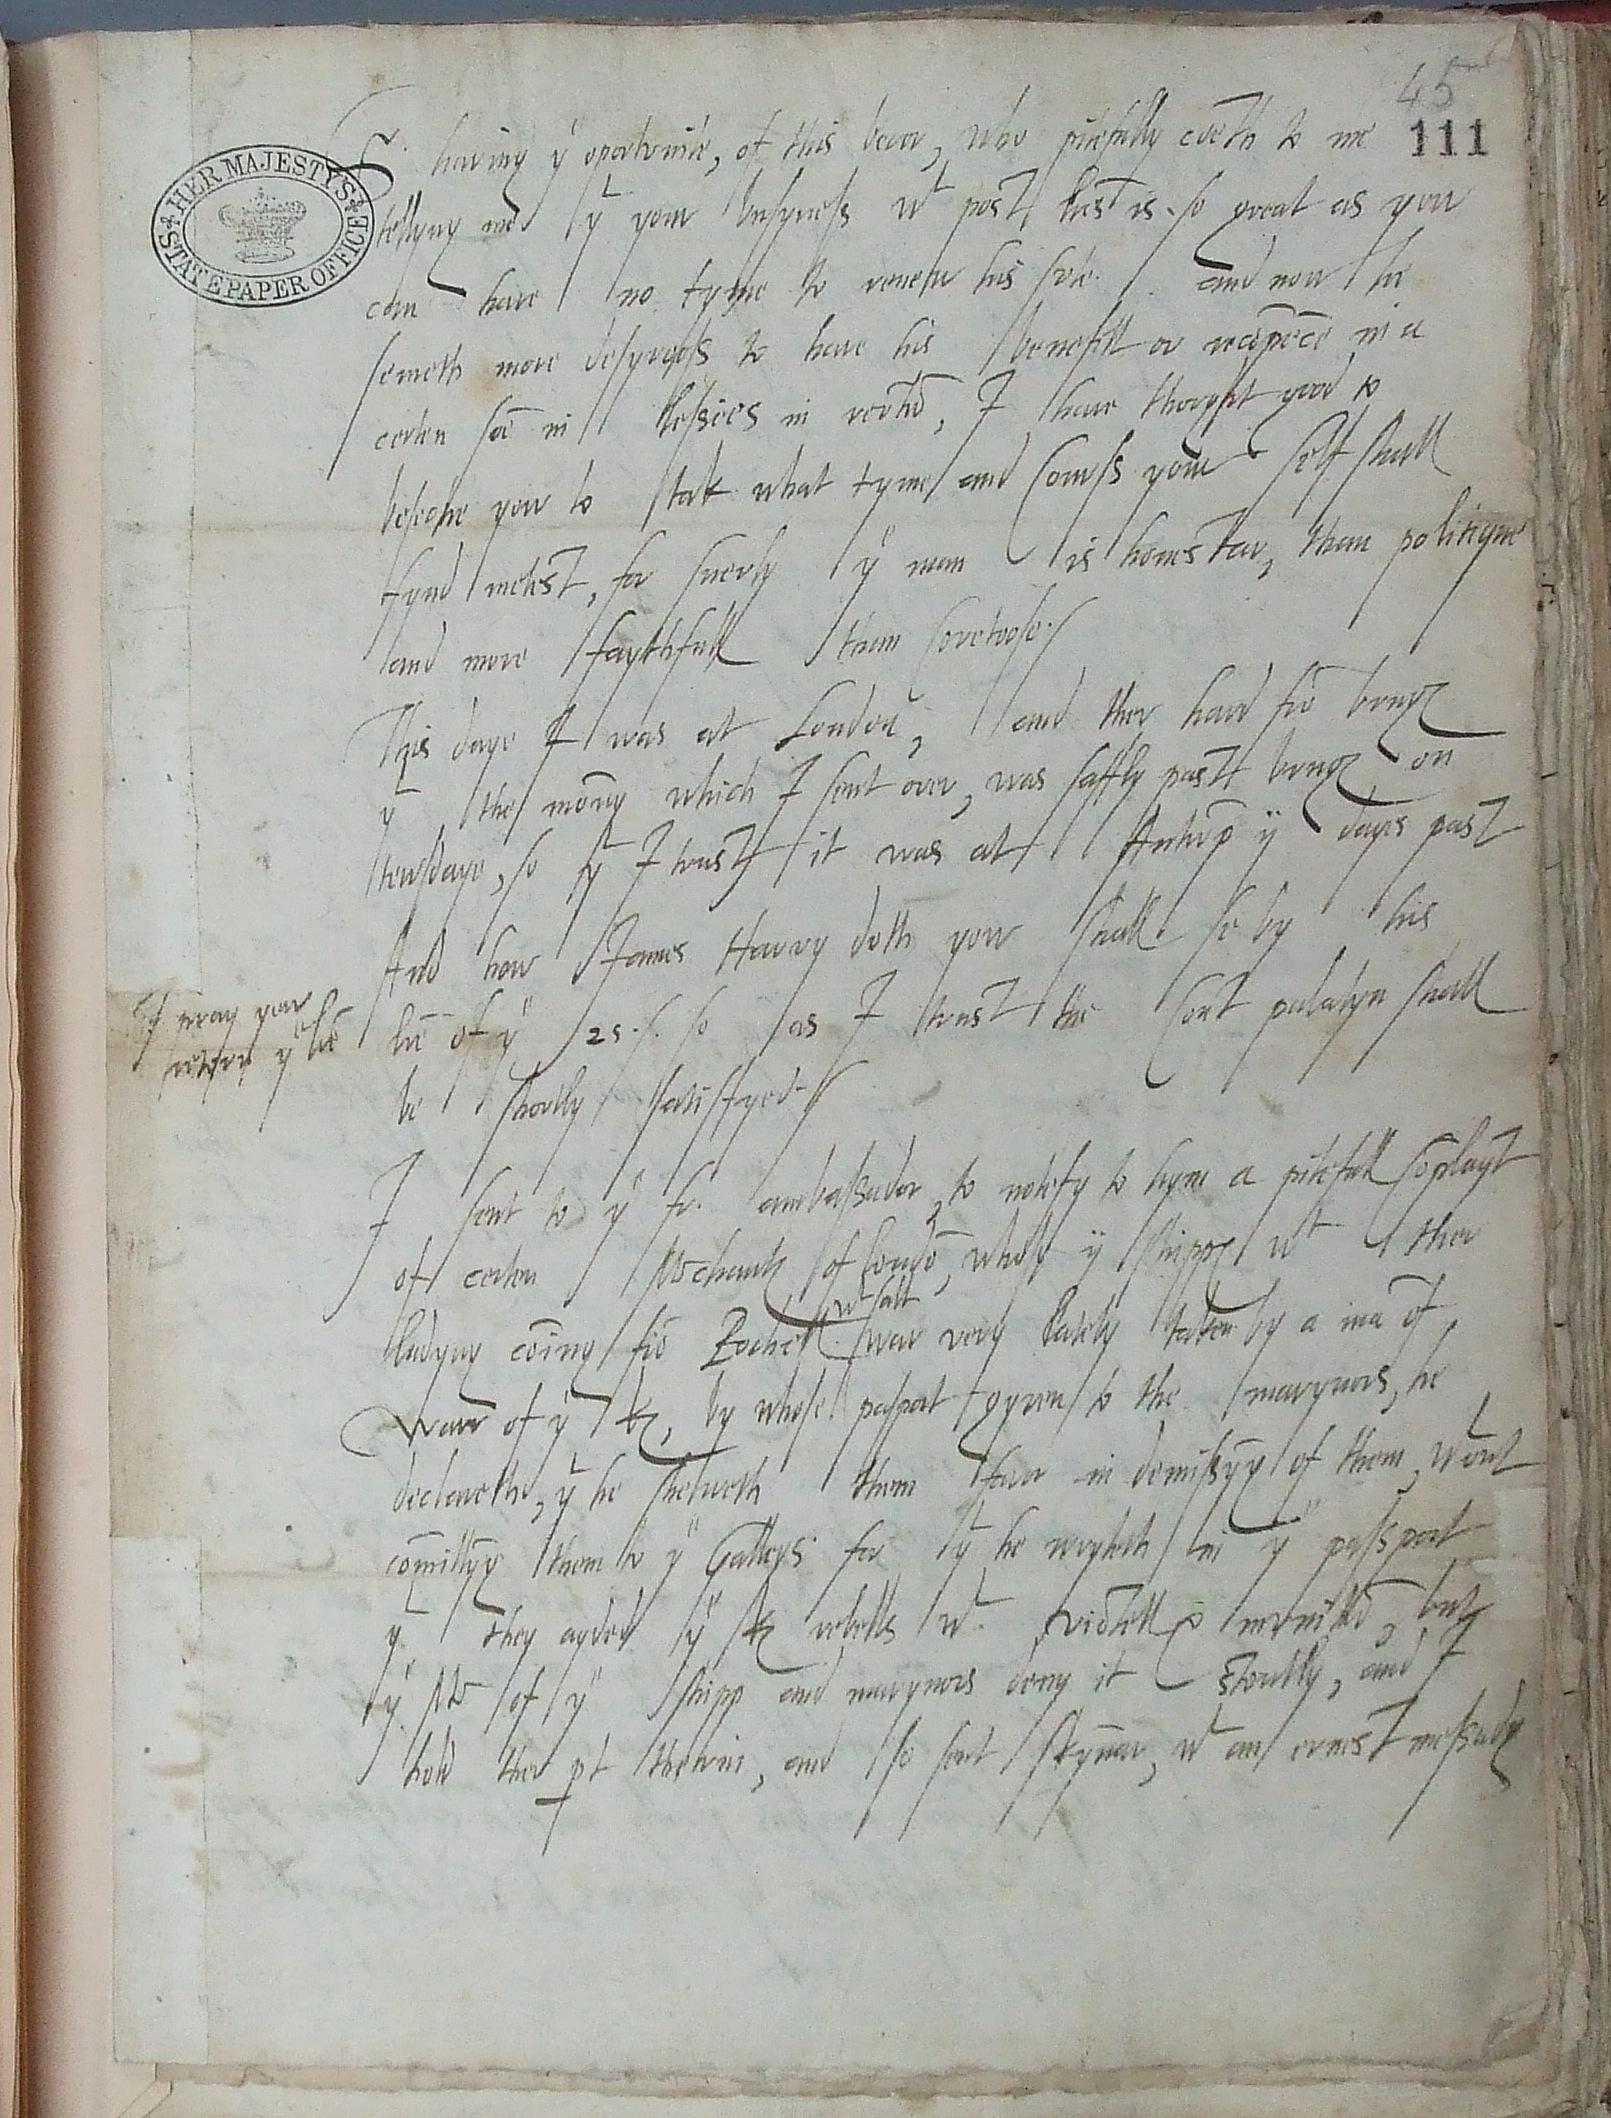 45
111
HER MAJESTY'S STATE PAPER OFFICE
Sr having yͤ oportunite, of this berar, who pitefully coeth to me
tellyng me yᵗ your busyness wᵗ post hast is so great as you
can have no tyme to renew his sute. and now he
semeth more desyrooss to have his benefitt or recōpēce in a
certen sōe in
beseche you to tak what tyme and courss your self shall
fynd metest, for suerly yͤ man is honestar, than politique
and more faythfull than covetoose./
This daye I was at London, and ther hard frō brugꝭ
yᵗ the mōny which I sent over, was saffly past brugꝭ on
tewsdaye, so yᵗ I trust it was at Antwꝑ ij dayes past
And how James Harvy doth yow shall se by his
lr̄e of yͤ 25./. so as I trust the Cont palatyn shall
be shortly satisfyed./
I pray you
retorn yͤ lr̄e
I sent to yͤ fr. ambassador, to notefy to hym a pitefull cōplaȳt
of certen Mr̄chantꝭ of londō, whose ij shippꝭ wᵗ ther
ladyng cōing frō Rochell wᵗ salt war very lately taken by a mā of
warr of yͤ kꝭ, by whose pasport gyven to the marynors, he
declareth, yᵗ he sheweth them favor in demissȳg of them, wᵗout
cōmittȳg them to yͤ Galleys for yᵗ he wryteth in yͤ passport
yᵗ they ayded yͤ kꝭ rebells wᵗ victell & munitiō, but
yͤ Mr of yͤ shipp and marynors deny it stoutly, and I
hold ther pt therin, and so sent Skynnar, wᵗ an ernest messadg